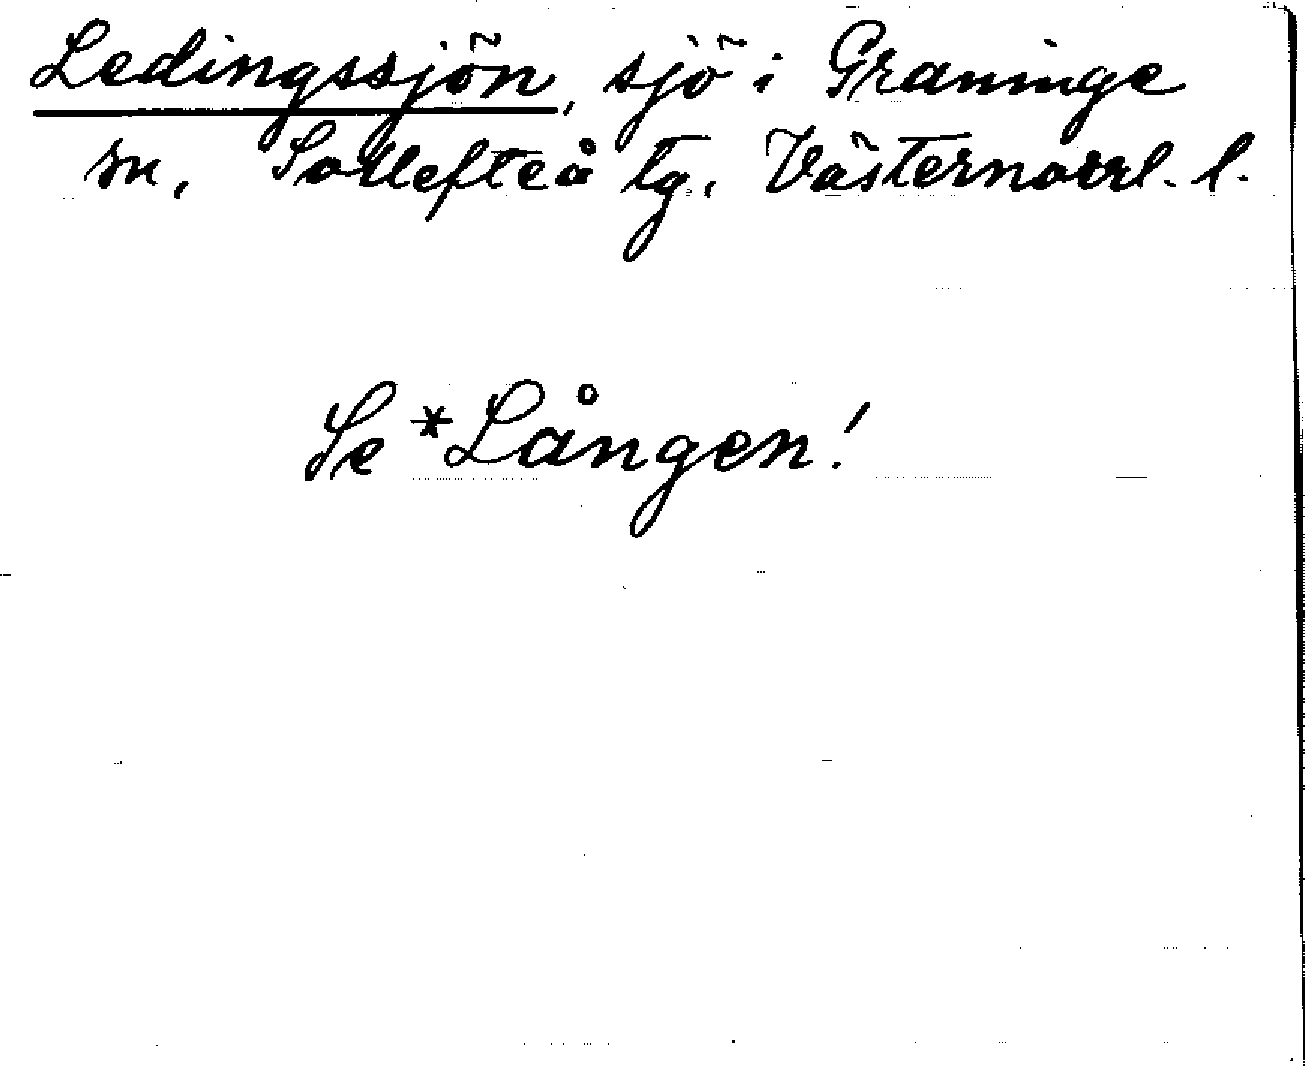 Ledingssjön, sjö i Graninge
sn, Sollefteå tg, Västernorrl. l.
Se *Lången!